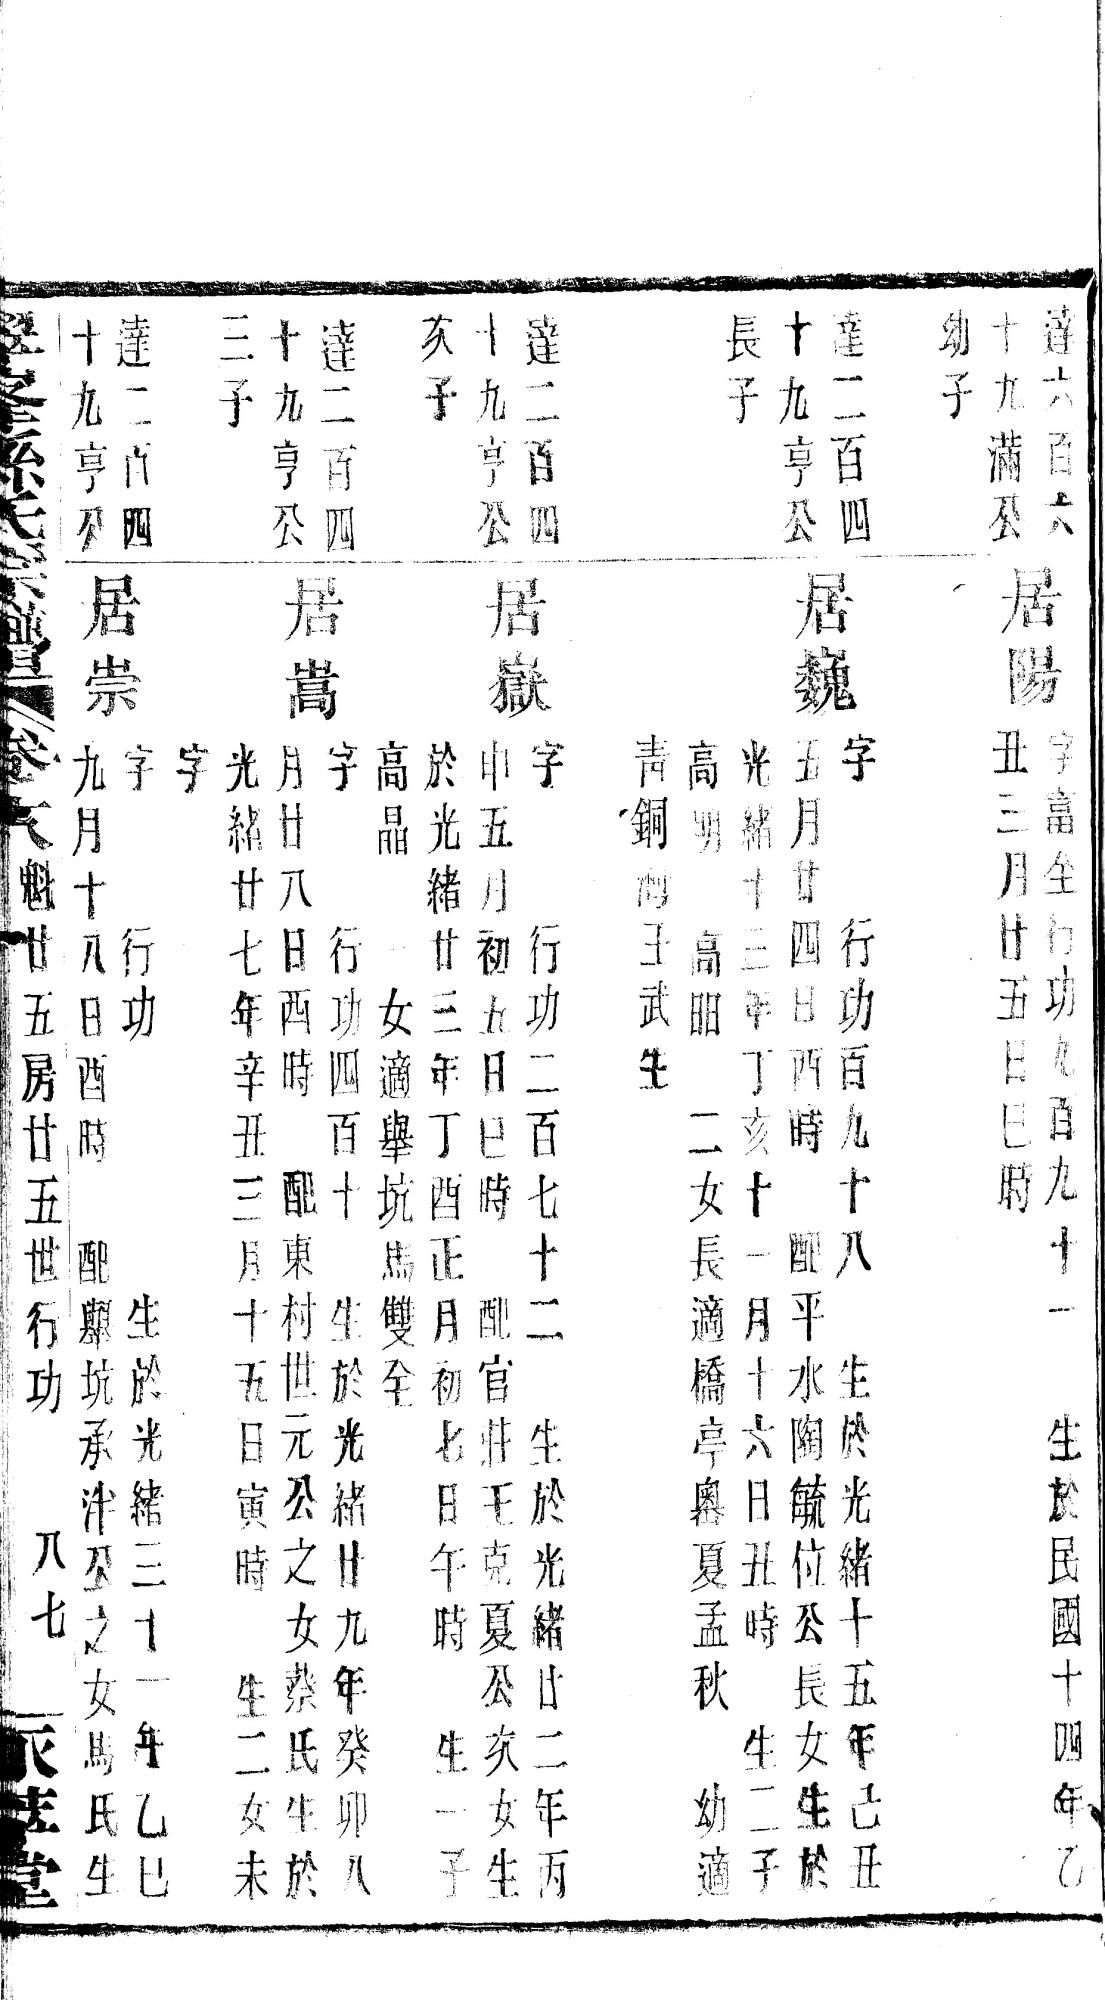 達六百六
十九滿公
幼子
居陽
字富全行功九百九十一 生於民國十四年乙
丑三月廿五日巳時
達二百四
十九亨公
長子
居巍
字 行功百九十八 生於光緒十五年己丑
五月廿四日酉時 配平水陶毓位公長女生於
光緒十三年丁亥十一月十六日丑時 生二子
高明 高昭 二女長適橋亭奧夏孟秋 幼適
青銅灣王武生
達二百四
十九亨公
次子
居嶽
字 行功二百七十二 生於光緒廿二年丙
申五月初九日巳時 配官莊王克夏公次女生
於光緒廿三年丁酉正月初七日午時 生一子
高晶 一女適舉坑馬雙全
達二百四
十九亨公
三子
居嵩
字 行功四百十 生於光緒廿九年癸卯八
月廿八日酉時 配東村世元公之女蔡氏生於
光緒廿七年辛丑三月十五日寅時 生二女未
字
達二百四
十九亨公
居崇
字 行功 生於光緒三十一年乙巳
九月十八日酉時 配舉坑承泮公之女馬氏生
孫氏宗譜 卷六 魁廿五房廿五世行功 八七 堂